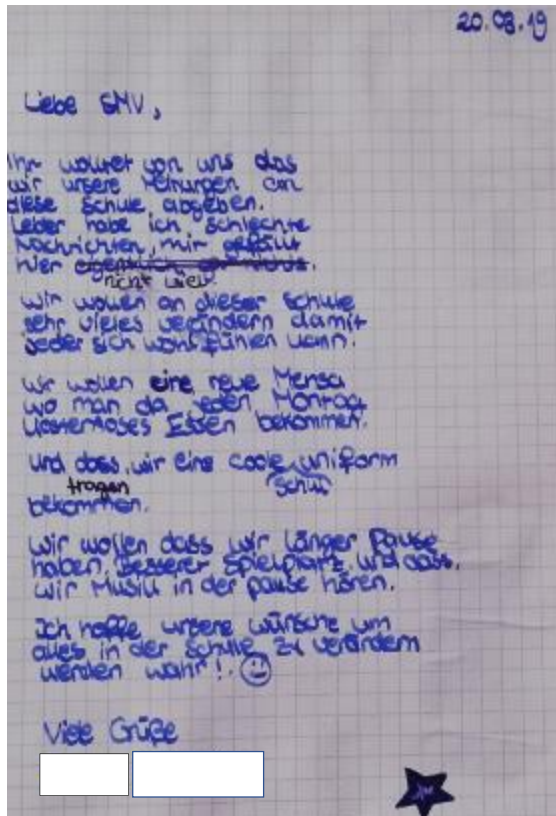 20.03.19
Liebe SMV,
Ihr wolltet von uns das
wir unsere Meinungen an
diese Schule abgeben.
Leider habe ich schlechte
Nachrichten, mir gefällt
hier
nicht viel.
Wir wollen an dieser Schule
sehr vieles verändern damit
jeder sich wohlfühlen kann.
Wir wollen eine neue Mensa
wo man da jeden Montag
kostenloses Essen bekommen.
Und dass wir eine coole uniform
tragen schul
bekommen.
Wir wollen dass wir länger Pause
haben, Besserer Spielplatz und dass,
wir Musik in der pause hören.
Ich hoffe unsere wünsche um
alles in der Schule zu verändern
werden wahr!.
Viele Grüße